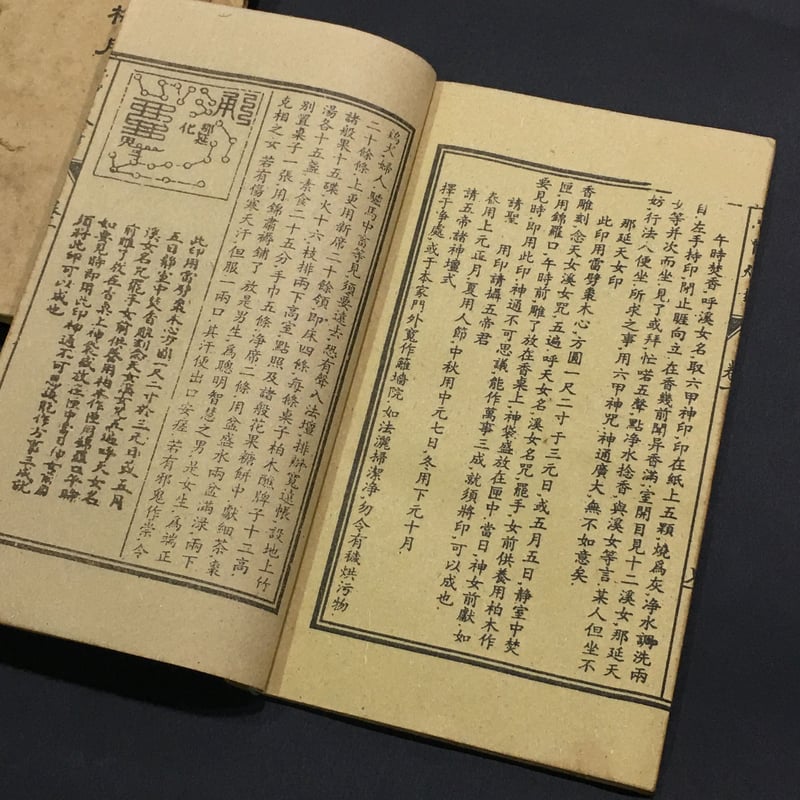 午時焚香呼溪女名取六甲神印印在紙上五顆燒爲灰净水調洗兩
目左手持印閉止向立在香幾前聞异香滿室開目見十二溪女那延天
女等并次而坐見了或拜忙喏五聲點净水捻香與溪女等言某人但坐不
妨行法人便坐所求之事用六甲神咒神通廣大無不如意矣
那延天女印
此印用雷劈棗木心方圓一尺二寸于三元日或五月五日静室中焚
香雕刻念天女溪女咒五遍呼天女名溪女名咒罷手女前供養用柏木作
匣用錦羅口午時前雕了放在香桌上神袋盛放在匣中當日神女前獻如
要見時即用此印神通不可思議能作萬事三成就須將印可以成也
請聖 用印請攝五帝君
春用上元正月夏用人節中秋用中元七日冬用下元十月
請五帝諸神壇式
擇于争處或于本家門外寬作離墻院如法灑掃潔净勿令有穢烘污物
鷄犬婦人驢馬中畜等見須要遠去恐有聲入法壇排辦寬遠帳設地上竹
二十餘條上更用新席二十餘領即床四條每條桌子柏木醮牌子十二高
諸般果十五碟火十六枝排兩下高室點照及諸般花果糖餅中獻細茶棗
湯各十五盞素食二十五分手巾五條净席二條用盆盛水兩盆滿渌兩下
別置桌子一張用錦肅褥鋪了放是男生爲聰明智慧之男是女生爲端正
克相之女若有傷寒天汗但服一兩口其汗便出口安痊若有邪鬼作祟令
那延
化
此印用雷劈棗木心方圓一尺二寸於三元日或五月
五日靜室中焚香雕刻念天女溪女咒五遍呼天女名
溪女名咒罷手女前供養用柏木作匣用錦羅口午時
前雕了放在香桌上神袋盛放在匣中當日神女前獻
如要見時即用此印神通不可思議能作万事三成就
須將此印可以成也
卷一